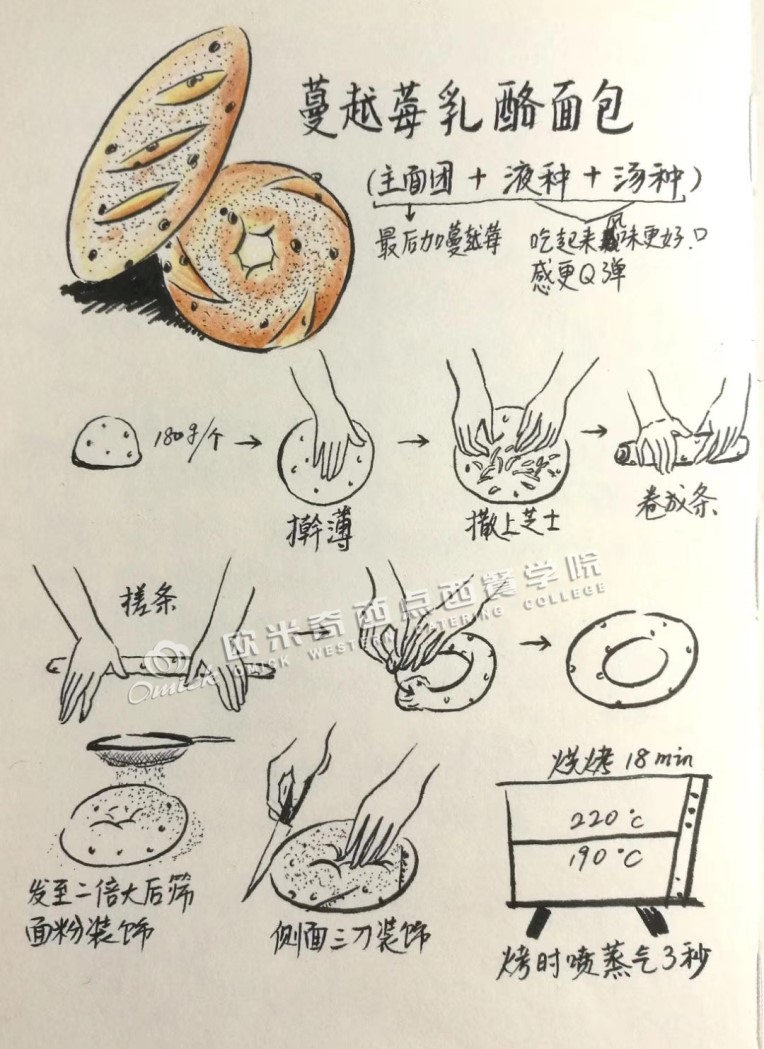 蔓越莓乳酪面包
(主面团 + 液种 + 汤种)
最后加蔓越莓
吃起来风味更好.口
感更Q弹
180g/个
擀薄
撒上芝士
卷成条
搓条
欧米奇西点西餐学院
Omick
OMICK WESTERN CATERING COLLEGE
发至二倍大后筛
面粉装饰
侧面三刀装饰
烘烤 18min
220°c
190°C
烤时喷蒸气3秒